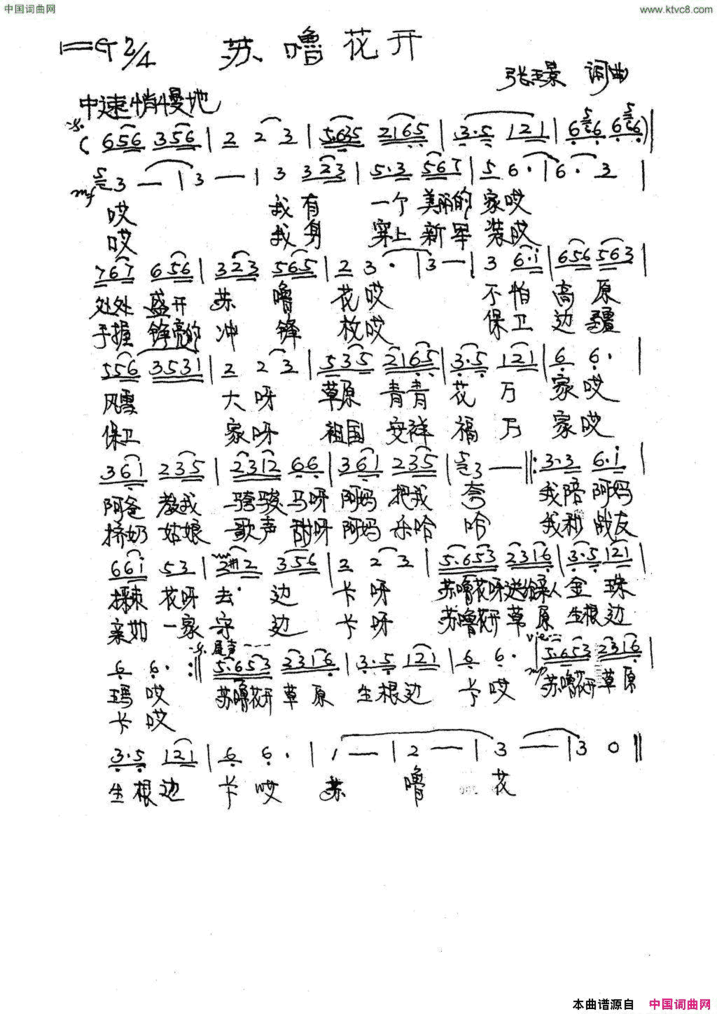 中国词曲网
www.ktvc8.com
1=G 2/4 苏噜花开
张玉景 词曲
中速稍慢地
( 656 356 | 2 2 3 | 5635 2165 | 3·5 121 | 656 656 ) |
mf 3 — | 3 — | 3 323 | 5·3 567 | 5 6· | 6· 3 |
哎 我有 一个 美丽的 家哎
哎 我身 穿上 新军 装哎
767 656 | 323 565 | 2 3· | 3 — | 3 6·i | 656 563 |
处处 盛开 苏 噜 花哎 不怕 高 原
手握 铮亮的 冲 锋 枚哎 保卫 边 疆
556 3531 | 2 2 3 | 535 2165 | 3·5 121 | 6 6· |
风雪 大呀 草原 青青 花 万 家哎
保卫 家呀 祖国 安祥 福 万 家哎
36i 235 | 2312 66 | 36i 235 | 3 — |: 3·3 6·i |
阿爸 教我 骑骏 马呀 阿妈 把我 夸 我陪 阿妈
挤奶 姑娘 歌声 甜呀 阿妈 乐哈 哈 我和 战友
66i 53 | 2#12 356 | 2 2 3 | 5·653 2316 | 3·5 121 |
採束 花呀 去 边 卡呀 苏噜花呀 金 珠
亲如 一家 守 边 卡呀 苏噜花开 草 原 生根边
6 6· :| 5·653 2316 | 3·5 121 | 6 6· | 5·653 2316 |
尾声
玛 哎 苏噜花开 草 原 生根边 卡哎 苏噜花开 草原
卡 哎
3·5 121 | 6 6· | 1 — | 2 — | 3 — | 3 0 ‖
生根边 卡 哎 苏 噜 花
本曲谱源自 中国词曲网